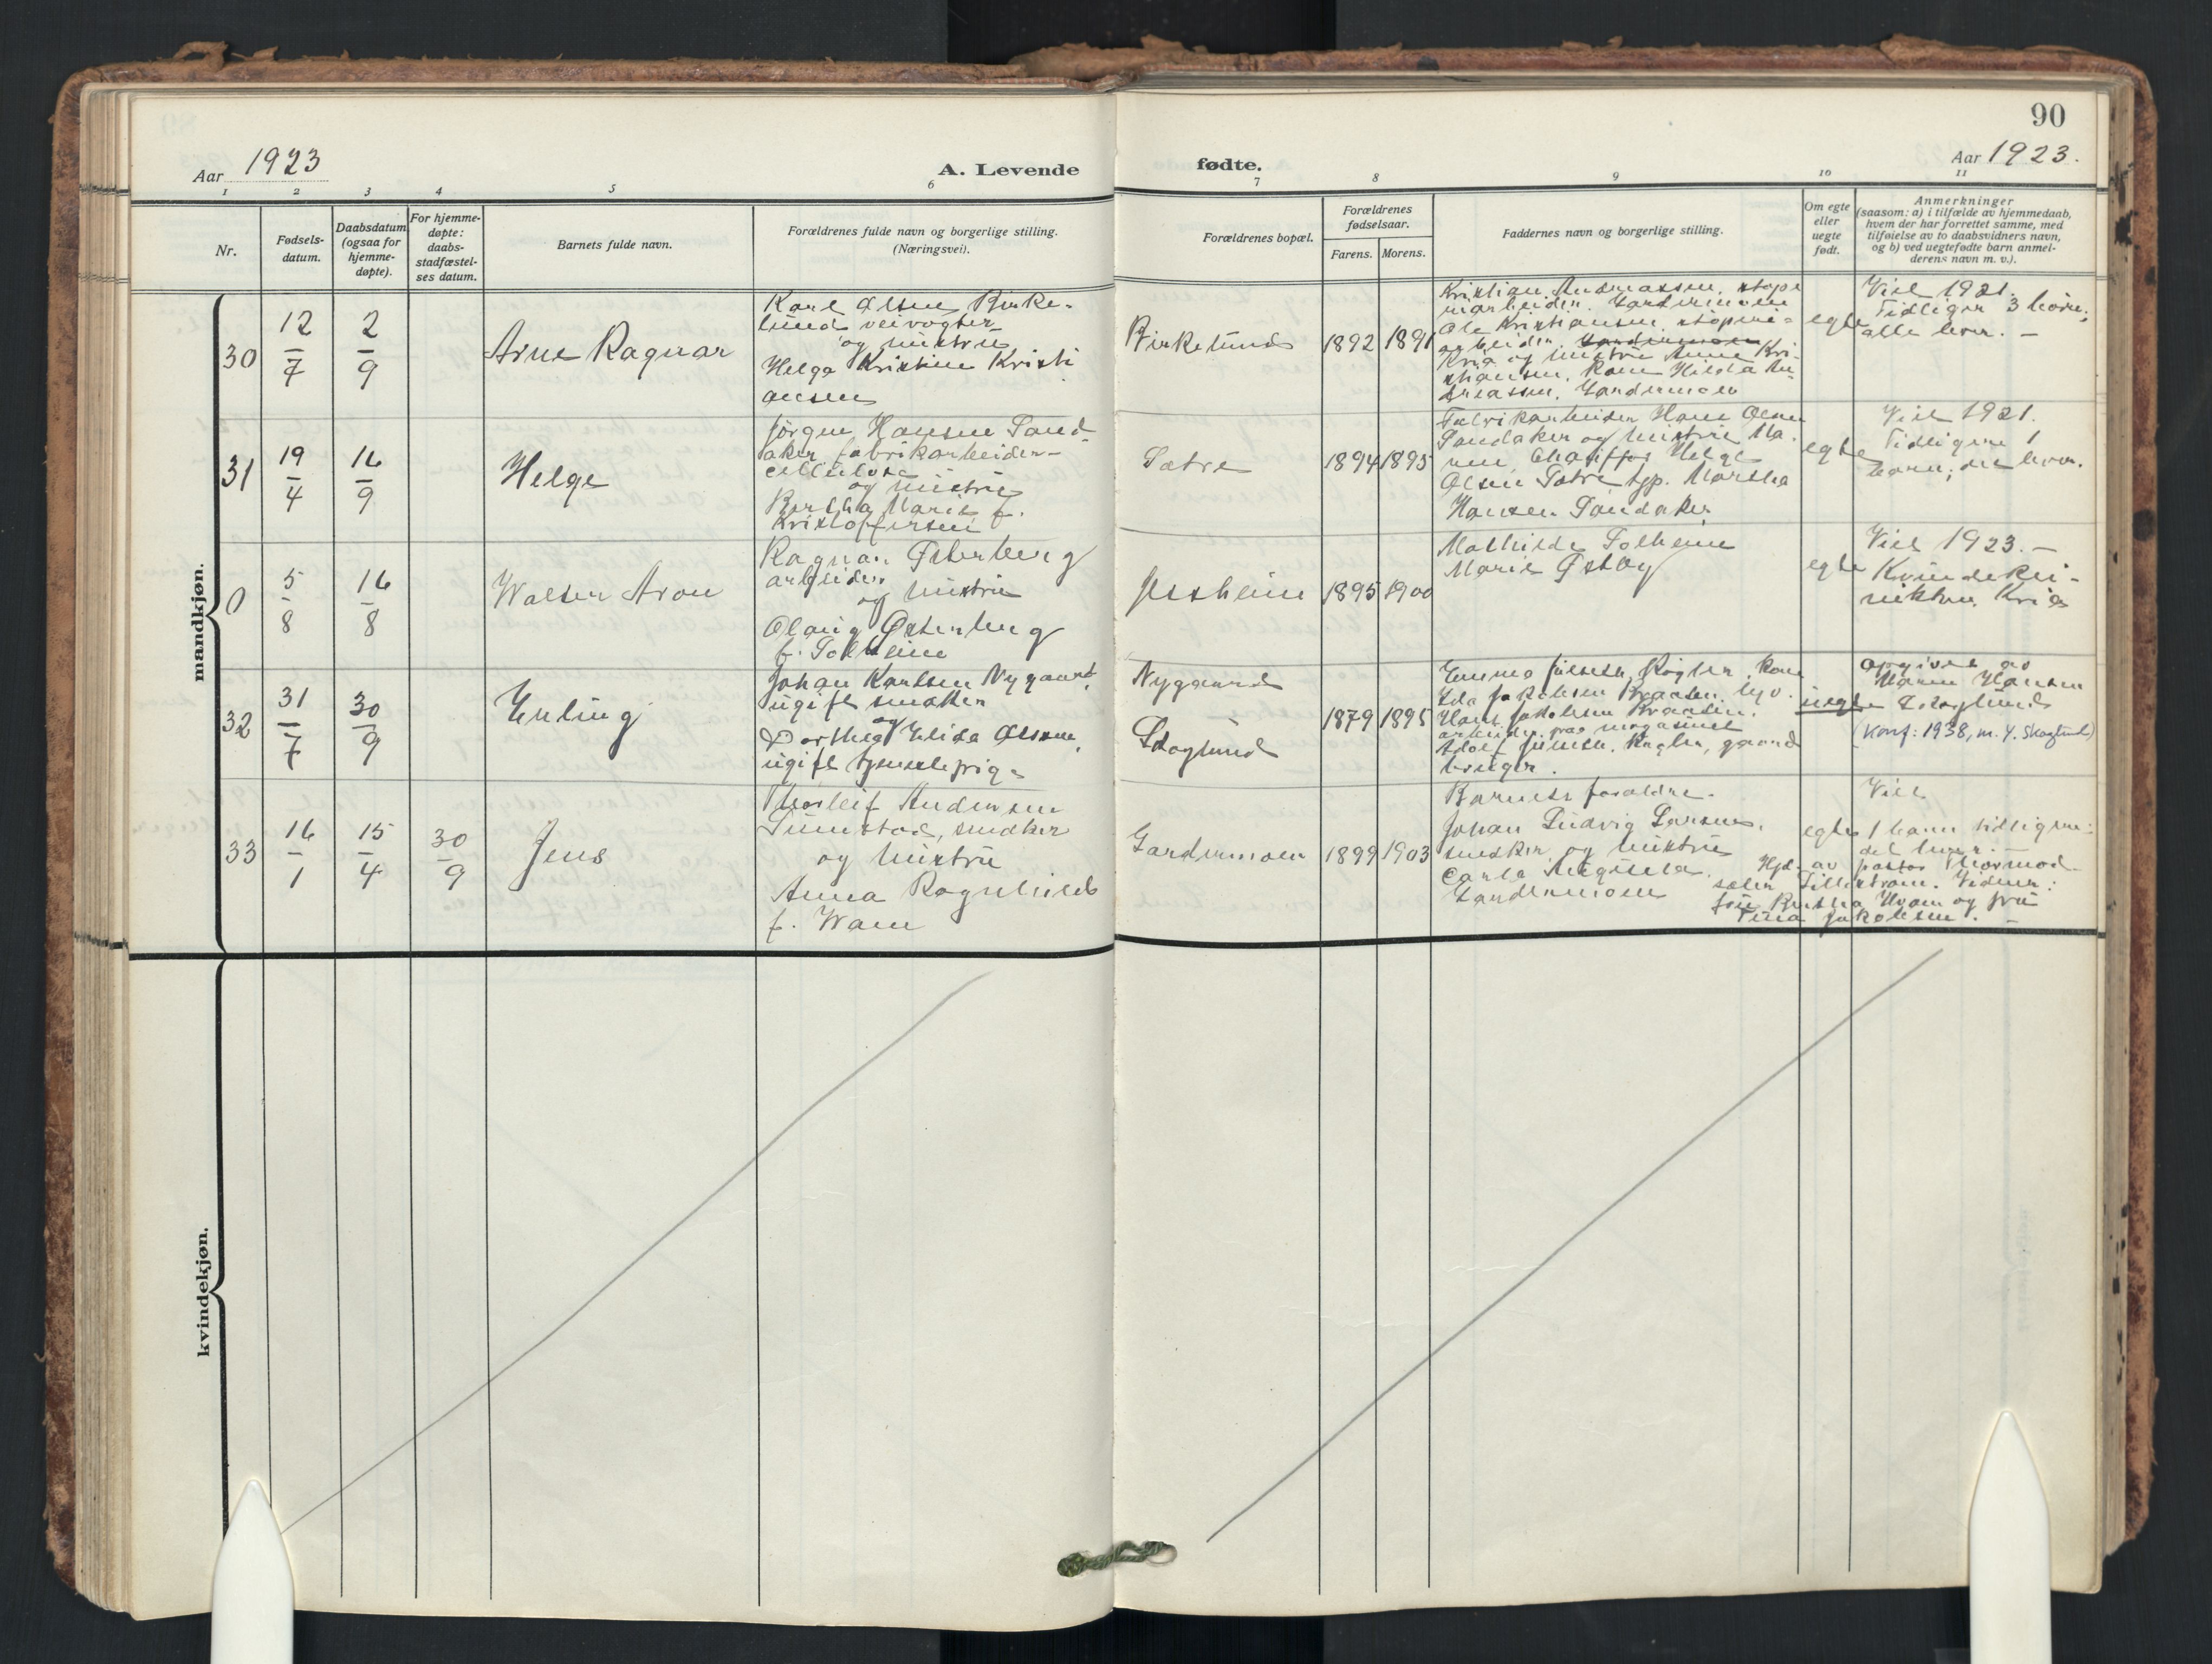 90
Aar 1923
A. Levende
fødte.
Aar 1923.
1 2 3 4 5 6 7 8 9 10 11
Nr.
Fødsels-
datum.
Daabsdatum
(ogsaa for
hjemme-
døpte).
For hjemme-
døpte:
daabs-
stadfæstel-
ses datum.
Barnets fulde navn.
Forældrenes fulde navn og borgerlige stilling.
(Næringsvei).
Forældrenes bopæl.
Forældrenes
fødselsaar.
Farens. Morens.
Faddernes navn og borgerlige stilling.
Om egte
eller
uegte
født.
Anmerkninger
(saasom: a) i tilfælde av hjemmedaab,
hvem der har forrettet samme, med
tilføielse av to daabsvidners navn,
og b) ved uegtefødte barn anmel-
derens navn m. v.).
mandkjøn.
30
12/7
2/9
Arne Ragnar
Karl Olsen Birke-
lund veivogter
og hustru
Helga Kristine Kristi
ansen
Birkelund
1892 1891
Kristian Andreassen, støpe
riarbeider, Gardermoen
Ole Kristiansen, støperi-
arbeider, Gardermoen
Kria og hustru Anna Kri-
stiansen. Kone Hilda An-
dreassen, Gardermoen
egte
Viet 1921.
Tidligere 3 barn;
alle lever. –
31
19/4
16/9
Helge
Jörgen Hansen Sand-
aker, fabrikarbeider-
cellulose
og hustru
Bertha Marie f.
Kristoffersen
Sætre
1894 1895
Fabrikarbeider Hans Olsen
Sandaker og hustru Ma-
ren, Chauffør Helge
Olsen Sætre, typ. Martha
Hansen Sandaker
egte
Viet 1921.
Tidligere 1
barn; det lever.
0
5/8
16/8
Walter Aron
Ragnar Østerberg
arbeider
og hustru
Olaug Østerberg
f. Solheim
Jessheim
1895 1900
Mathilde Solheim
Marie Østby
egte
Viet 1923. –
Kvindekli-
nikken Kria
32
31/7
30/9
Erling
Johan Karlsen Nygaard,
ugift snekker
og
Dorthea Elida Olsen,
ugift tjenestepige
Nygaard
Skoglund
1879 1895
Emma Julsen, Røgler, Kone
Ida Jakobsen Braaten, typ.
Hans Jakobsen Braaten,
arbeider paa magasinet
Adolf Julsen, Røgler, gaard
bruger.
uegte
Opgivet av
Maren Hansen
Skoglund
(Konf: 1938, m. Y. Skoglund)
33
16/1
15/4
30/9
Jens
Thorleif Andersen
Sunstad, snedker
og hustru
Anna Ragnhild
f. Wam
Gardermoen
1899 1903
Barnets forældre.
Johan Ludvig Larsen,
snedker og hustru
Carla Augusta
Gardermoen
egte
Viet
1 barn tidligere:
det lever. –
Hjd. av pastor Thormod-
sæter Lillestrøm. Vidner:
fru Bertha Hvam og fru
Tina Jakobsen. –
kvindekjøn.